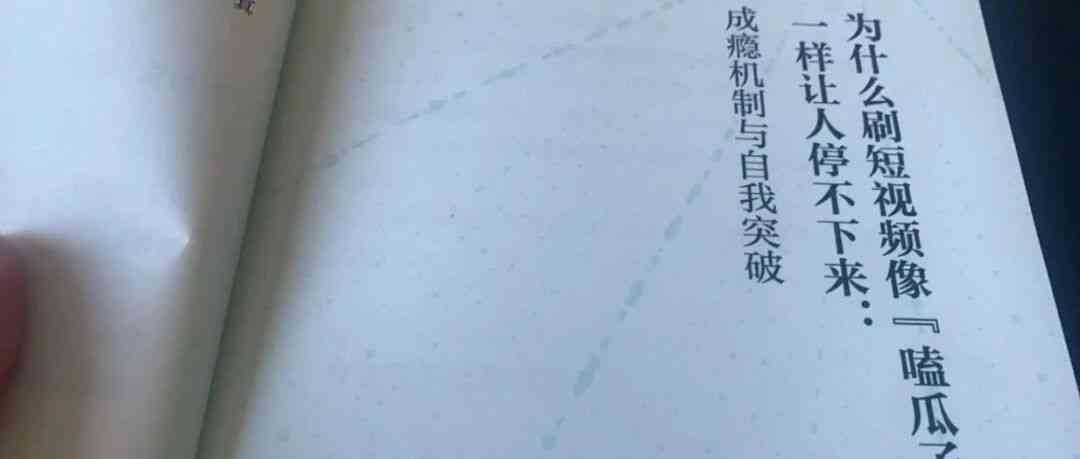 为什么刷短视频像『嗑瓜子
一样让人停不下来：
成瘾机制与自我突破